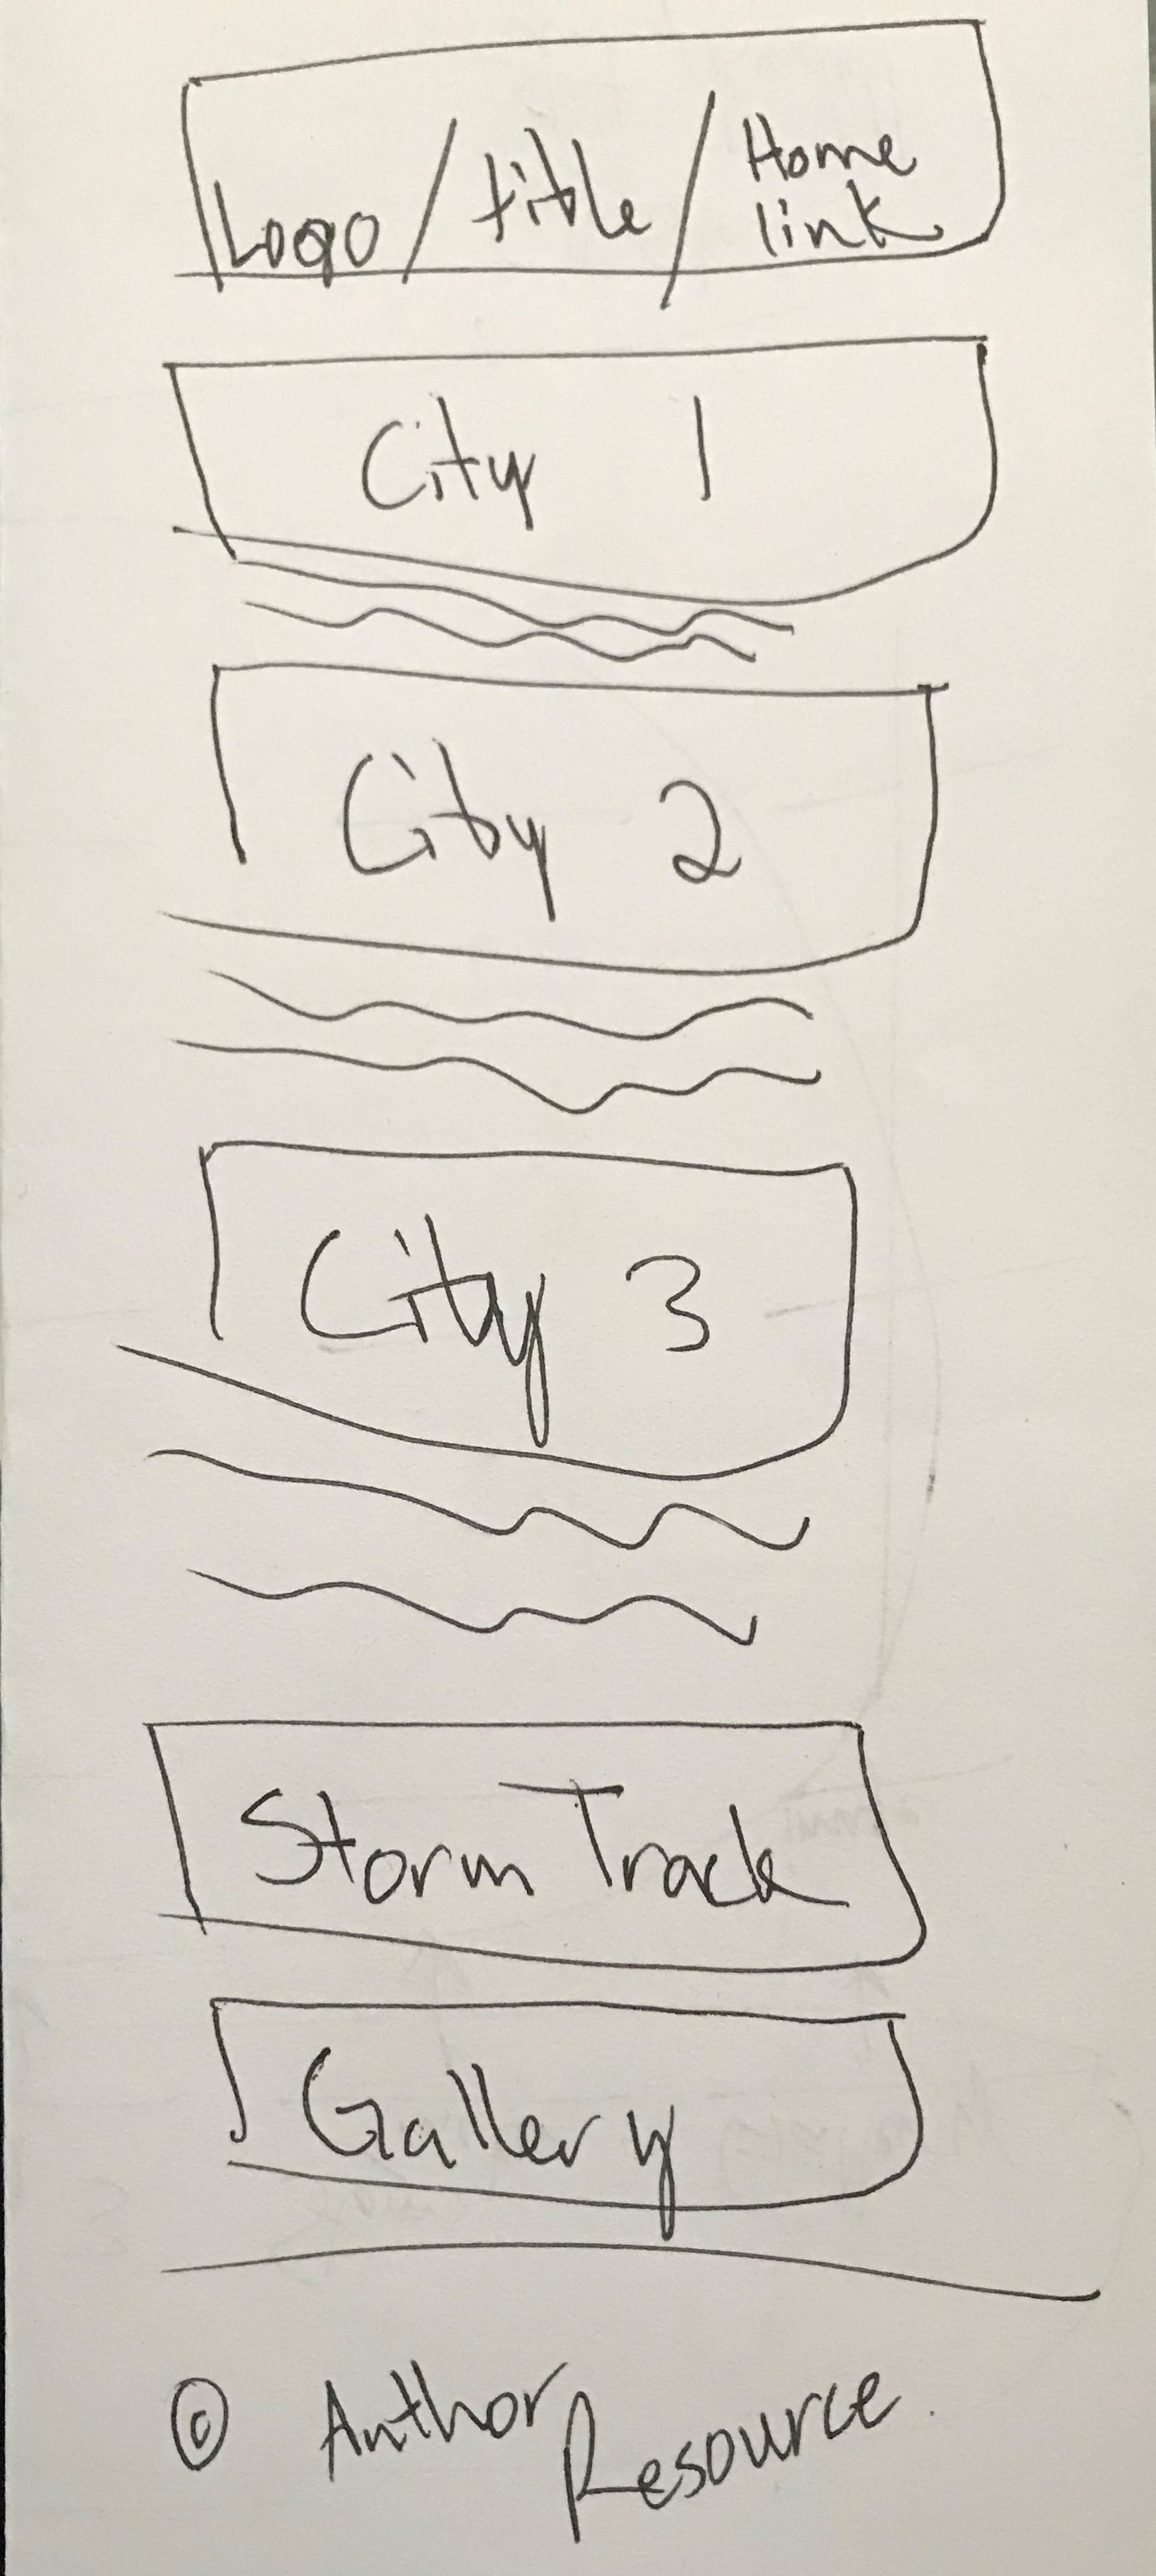 Logo / title / Home link
City 1
City 2
City 3
Storm Track
Gallery
© Author Resource